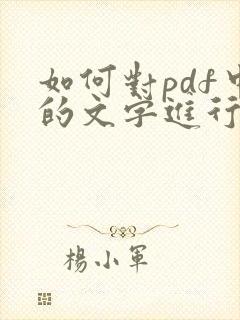 如何對pdf中
的文字進行
楊小軍